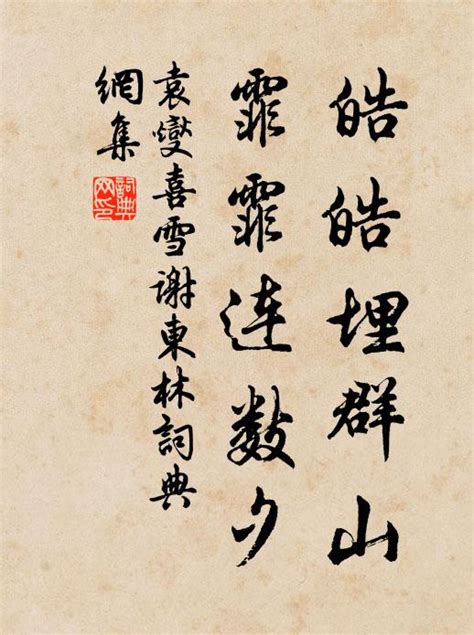 皓皓埋群山
霏霏连数夕
袁燮喜雪谢東林詞典
網集
詞典
网印